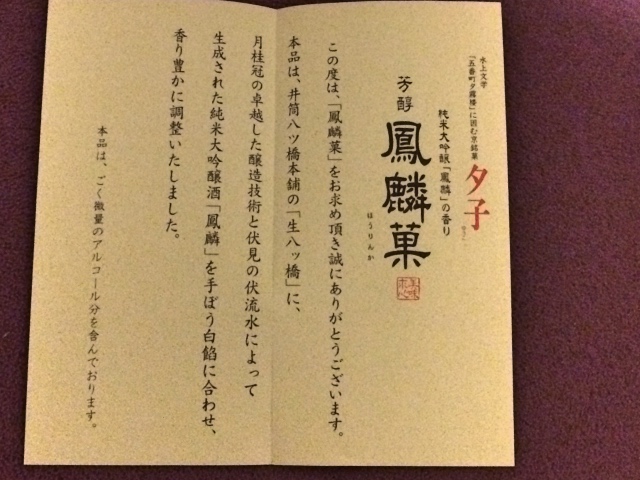 水上文学
「五番町夕霧楼」に因む京銘菓
夕子
純米大吟醸「鳳麟」の香り
芳醇
鳳麟菓
ほうりんか
この度は、「鳳麟菓」をお求め頂き誠にありがとうございます。
本品は、井筒八ッ橋本舗の「生八ッ橋」に、
月桂冠の卓越した醸造技術と伏見の伏流水によって
生成された純米大吟醸酒「鳳麟」を手ぼう白餡に合わせ、
香り豊かに調整いたしました。
本品は、ごく微量のアルコール分を含んでおります。